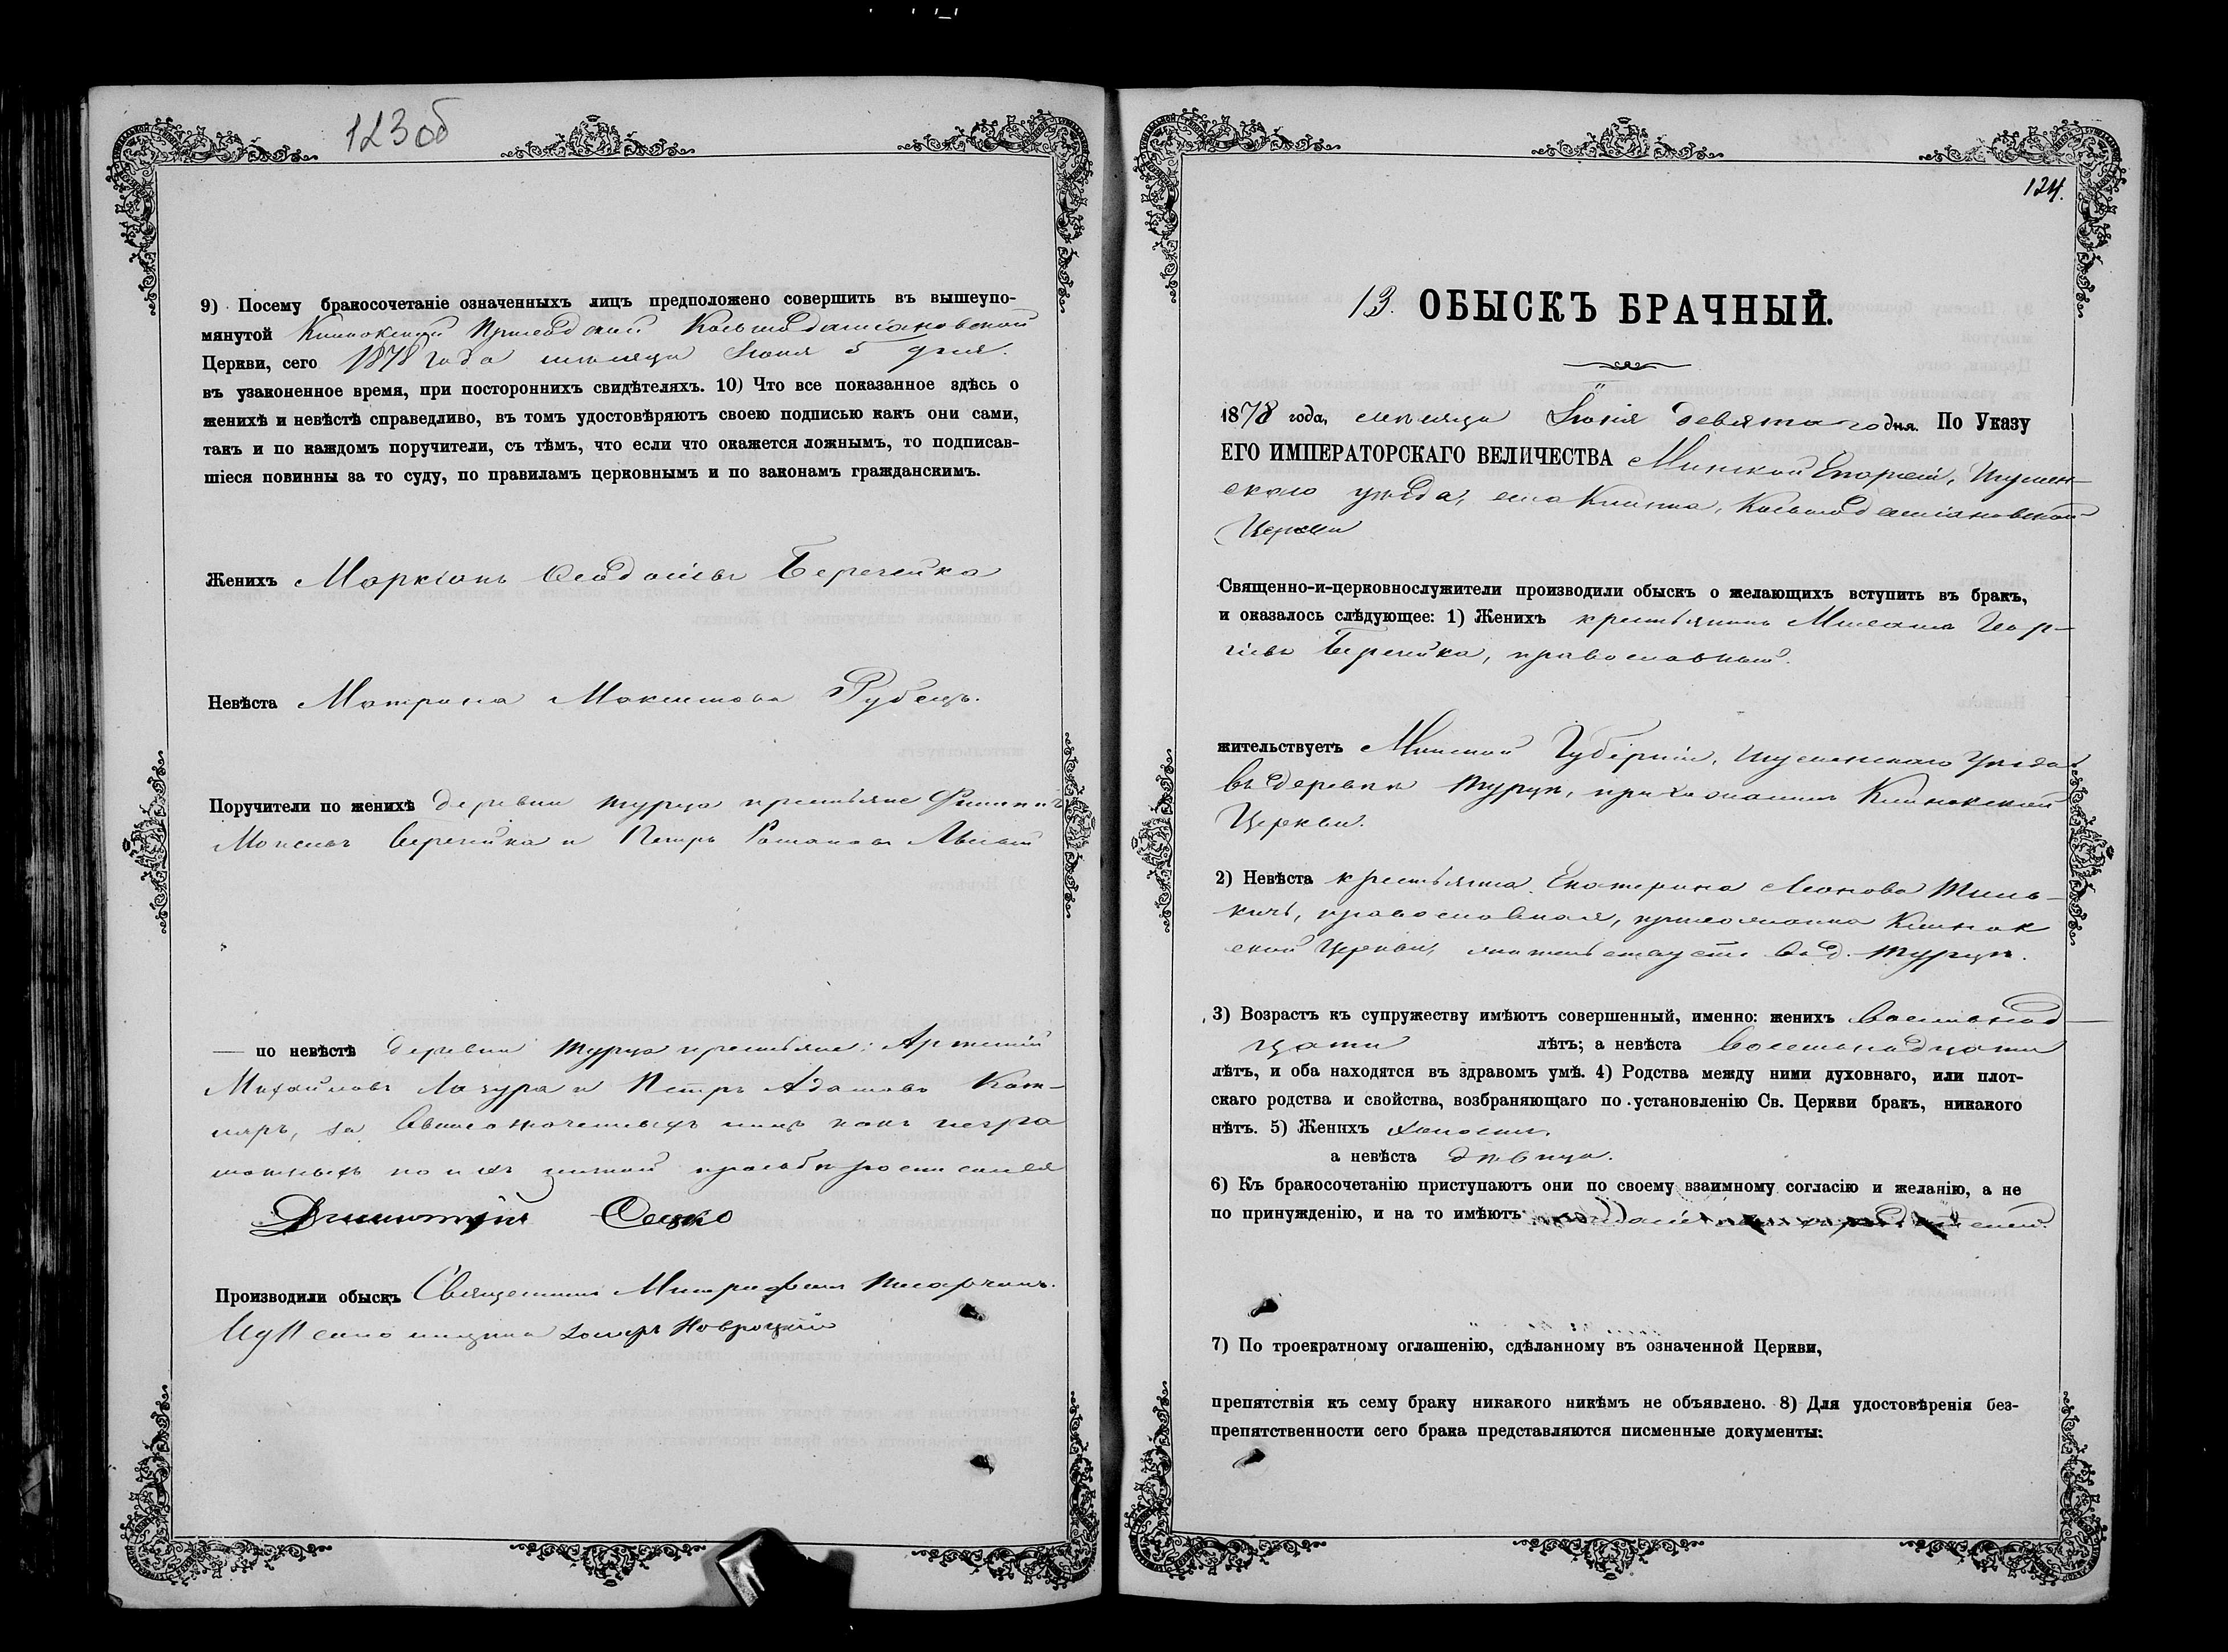 123 об
9) Посему бракосочетаніе означенныхъ лицъ предположено совершить въ вышеупо-
мянутой Клинокской Космодаміановской
Церкви, сего 1878 года месяца 5 дня.
въ узаконенное время, при постороннихъ свидѣтеляхъ. 10) Что все показанное здѣсь о
женихѣ и невѣстѣ справедливо, въ томъ удостовѣряютъ своею подписью какъ они сами,
такъ и по каждомъ поручители, съ тѣмъ, что если что окажется ложнымъ, то подписав-
шіеся повинны за то суду, по правиламъ церковнымъ и по законамъ гражданскимъ.
Женихъ Маркіанъ Беречейка
Невѣста Матрона Максимова Рубецъ.
Поручители по женихѣ деревни Турца крестьяне Филиппъ
Беречейка и Петръ Романовъ
— по невѣстѣ деревни Турца крестьяне: Артемій
Михайловъ Лазура и Петръ Адамовъ Кот-
ляръ, за
по ихъ личной просьбѣ росписался
Димитрій Сецко
Производили обыскъ Священникъ Митрофанъ
Новроцкій
124.
13. ОБЫСКЪ БРАЧНЫЙ.
1878 года, месяца Іюня девятаго дня. По Указу
ЕГО ИМПЕРАТОРСКАГО ВЕЛИЧЕСТВА Минской Епархіи, Игумен-
скаго уѣзда, села Клинка, Космодаміановской
Церкви
Священно-и-церковнослужители производили обыскъ о желающихъ вступить въ бракъ,
и оказалось слѣдующее: 1) Женихъ крестьянинъ Геор-
гіевъ Беречейка, православный.
жительствуетъ Минской Губерніи, Игуменскаго Уѣзда
въ деревни Турцѣ, прихожанинъ Клинокской
Церкви.
2) Невѣста крестьянка Екатерина Леонова
православная, прихожанка Клинок
ской Церкви, жительствуетъ въ д. Турцѣ.
3) Возрастъ къ супружеству имѣютъ совершенный, именно: женихъ восемьнад-
цати лѣтъ; а невѣста восемьнадцати
лѣтъ, и оба находятся въ здравомъ умѣ. 4) Родства между ними духовнаго, или плот-
скаго родства и свойства, возбраняющаго по установленію Св. Церкви бракъ, никакого
нѣтъ. 5) Женихъ холостъ,
а невѣста дѣвица.
6) Къ бракосочетанію приступаютъ они по своему взаимному согласію и желанію, а не
по принужденію, и на то имѣютъ
7) По троекратному оглашенію, сдѣланному въ означенной Церкви,
препятствія къ сему браку никакого никѣмъ не объявлено. 8) Для удостовѣренія без-
препятственности сего брака представляются писменные документы: